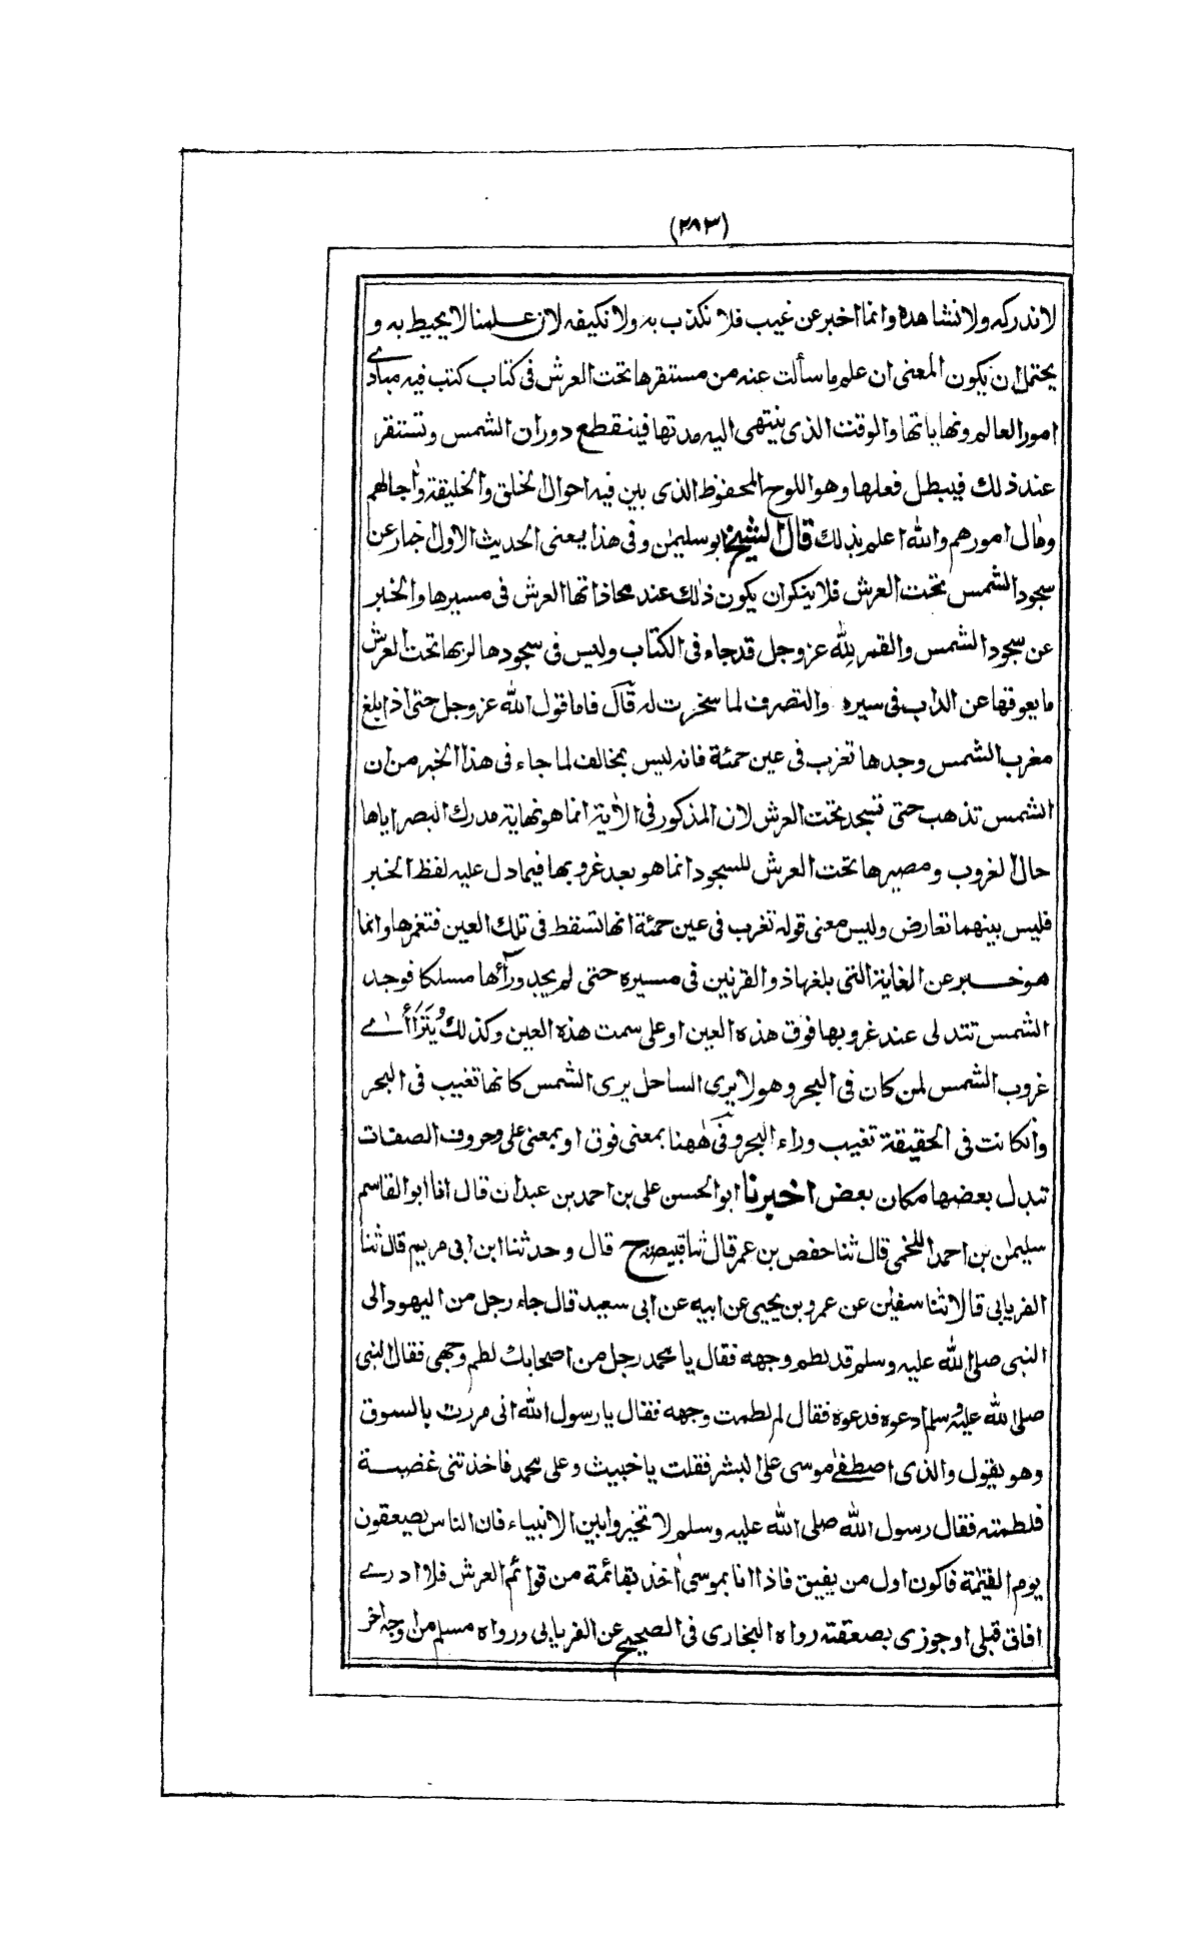 (٢٨٣)
لاندركه ولانشاهده وانما اخبر عن غيب فلا نكذب به ولا نكيفه لان علمنا لا يحيط به و
يحتمل ان يكون المعنى ان علم ما سألت عنه من مستقرها تحت العرش فى كتاب كتب فيه مبادے
امور العالم ونهاياتها والوقت الذى ينتهى اليه مدتها فينقطع دوران الشمس وتستقر
عند ذلك فيبطل فعلها وهو اللوح المحفوظ الذى بين فيه احوال الخلق والخليقة وآجالهم
ومآل امورهم والله اعلم بذلك قال الشيخ ابو سليمٰن وفى هذا يعنى الحديث الاول اخبار عن
سجود الشمس تحت العرش فلا ينكر ان يكون ذلك عند محاذاتها العرش فى مسيرها والخبر
عن سجود الشمس والقمر لله عز وجل قد جاء فى الكتاب وليس فى سجودها لربها تحت العرش
ما يعوقها عن الداب فى سيره والتصرف لما سخرت له قال فاما قول الله عز وجل حتى اذا بلغ
مغرب الشمس وجدها تغرب فى عين حمئة فانه ليس بمخالف لما جاء فى هذا الخبر من ان
الشمس تذهب حتى تسجد تحت العرش لان المذكور فى الأية انما هو نهاية مدرك البصر اياها
حال الغروب ومصيرها تحت العرش للسجود انما هو بعد غروبها فيما دل عليه لفظ الخبر
فليس بينهما تعارض وليس معنى قوله تغرب فى عين حمئة انها تسقط فى تلك العين فتغمرها وانما
هو خبر عن الغاية التى بلغها ذو القرنين فى مسيره حتى لم يجد ورآئها مسلكا فوجد
الشمس تتدلى عند غروبها فوق هذه العين او على سمت هذه العين وكذلك يَتَرَاأٰے
غروب الشمس لمن كان فى البحر وهو لا يرى الساحل يرى الشمس كانها تغيب فى البحر
وانكانت فى الحقيقة تغيب وراء البحر وفى هٰهنا بمعنى فوق او بمعنى على وحروف الصفات
تبدل بعضها مكان بعض اخبرنا ابو الحسن على بن احمد بن عبدان قال انا ابو القاسم
سليمٰن بن احمد اللخمى قال ثنا حفص بن عمر قال ثنا قبيصة ح قال وحدثنا ابن ابى مريم قال ثنا
الفريابى قالا ثنا سفيٰن عن عمرو بن يحيى عن ابيه عن ابى سعيد قال جاء رجل من اليهود الى
النبى صلى الله عليه وسلم قد لطم وجهه فقال يا محمد رجل من اصحابك لطم وجهى فقال النبى
صلى الله عليه وسلم ادعوه فدعوه فقال لم لطمت وجهه فقال يا رسول الله انى مررت بالسوق
وهو يقول والذى اصطفٰے موسى على البشر فقلت يا خبيث وعلى محمد فاخذتنى غضبة
فلطمته فقال رسول الله صلى الله عليه وسلم لا تخيروا بين الانبياء فان الناس يصعقون
يوم القيٰمة فاكون اول من يفيق فاذا انا بموسى آخذ بقائمة من قوائم العرش فلا ادرے
افاق قبلى او جوزى بصعقته رواه البخارى فى الصحيح عن الفريابى ورواه مسلم من وجه اٰخر